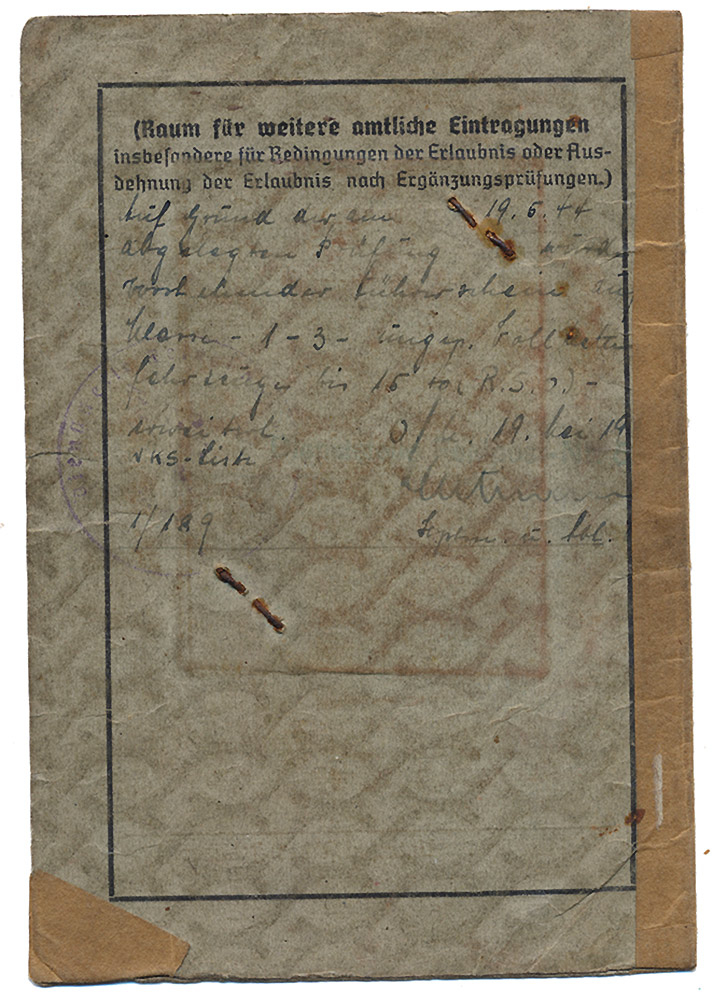 (Raum für weitere amtliche Eintragungen
insbesondere für Bedingungen der Erlaubnis oder Aus-
dehnung der Erlaubnis nach Ergänzungsprüfungen.)
Auf Grund der am 19.5.44
abgelegten Prüfung wurde
vorstehender Führerschein auf
Klasse - 1 - 3 -
fahrzeuge bis 15 to (R.S.O.) -
erweitert. O/U. 19. Mai 19
VKS-Liste
1/189
Hptm. u.